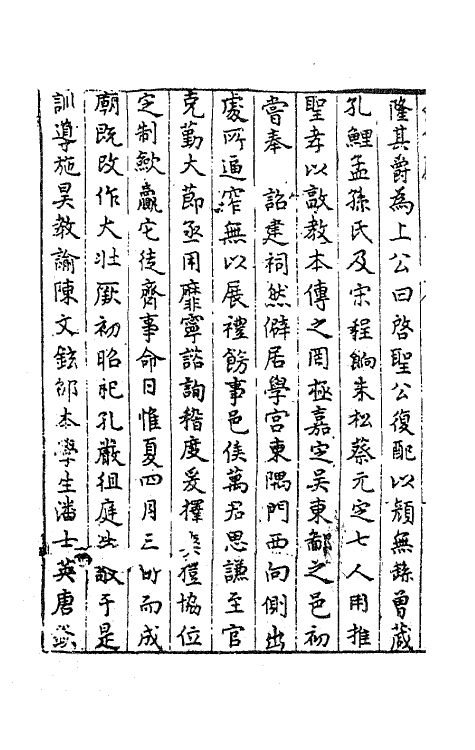 隆其爵為上公曰啓聖公復配以顏無繇曾蒧
孔鯉孟孫氏及宋程餉朱松蔡元定七人用推
聖孝以敦教本傳之罔極嘉定吴東鄙之邑初
嘗奉 詔建祠然僻居學宫東隅門西向側出
處所逼窄無以展禮餙事邑侯萬君思謙至官
克勤大節丞用靡寧諮詢稽度爰擇 獲協位
定制歛羸宅徒齊事命日惟夏四月三 而成
廟既改作大壯厥初昭祀孔嚴徂庭 敬于是
訓導施昊教諭陳文鉉郃本學生潘士英唐